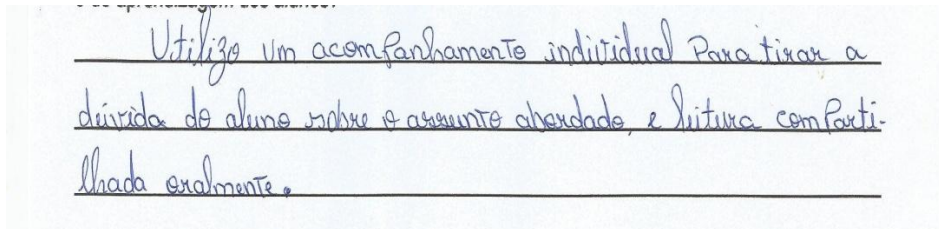 Utilizo um acompanhamento individual para tirar a
dúvida do aluno sobre o assunto abordado, e leitura comparti-
lhada oralmente.